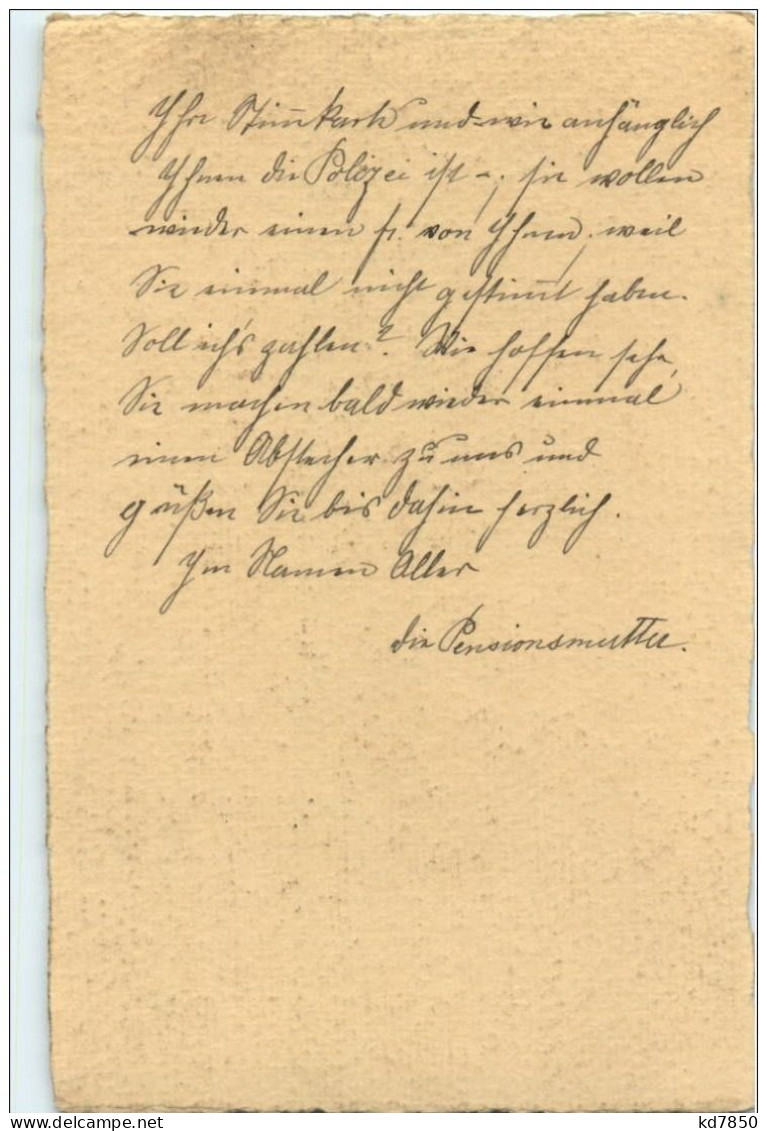 Ihre Stim̅karte und wie anhänglich
Ihnen die Polizei ist –; sie wollen
wieder einen fr. von Ihnen, weil
Sie einmal nicht gestim̅t haben.
Soll ich's zahlen? Wir hoffen sehr,
Sie machen bald wieder einmal
einen Abstecher zu uns und
grüßen Sie bis dahin herzlich.
Im Namen Aller
die Pensionsmutter.
kd7850